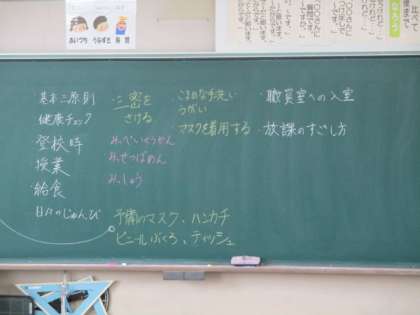 あいづち うなずき 反応
基本三原則
健康チェック
登校時
授業
・給食
日々のじゅんび
・三密を
さける
みっぺいくうかん
みっせつばめん
みっしゅう
・こまめな手洗い
うがい
・マスクを着用する
予備のマスク、ハンカチ
ビニールぶくろ、ティッシュ
・職員室への入室
・放課のすごし方